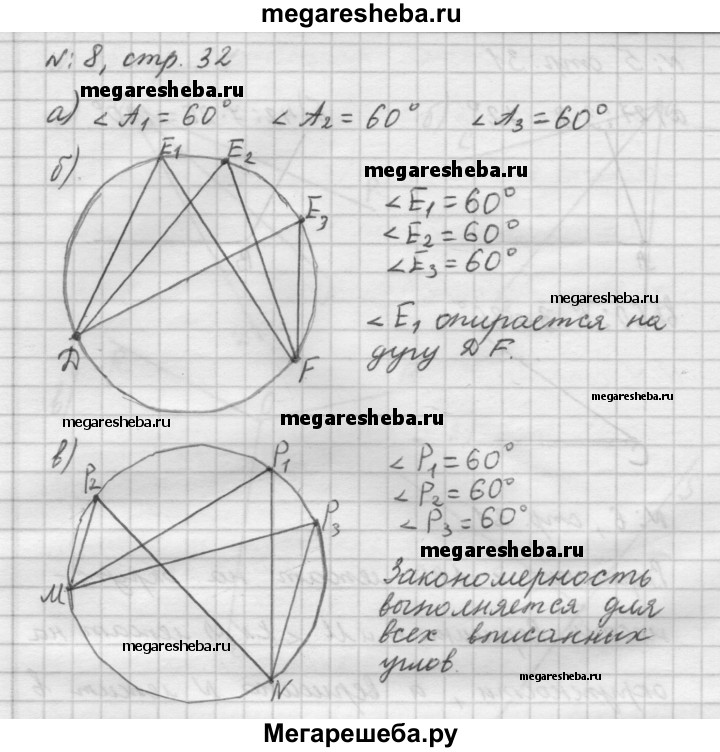 megaresheba.ru
N: 8, стр. 32
megaresheba.ru
а) ∠A₁ = 60° ∠A₂ = 60° ∠A₃ = 60°
б).
E₁ E₂
megaresheba.ru
E₃
∠E₁ = 60°
∠E₂ = 60°
∠E₃ = 60°
megaresheba.ru
∠E₁ опирается на
дугу DF.
D
F
megaresheba.ru
megaresheba.ru
megaresheba.ru
в)
P₂ P₁
P₃
∠P₁ = 60°
∠P₂ = 60°
∠P₃ = 60°
megaresheba.ru
M
Закономерность
выполняется для
всех вписанных
углов.
megaresheba.ru
N
megaresheba.ru
Мегарешеба.ру